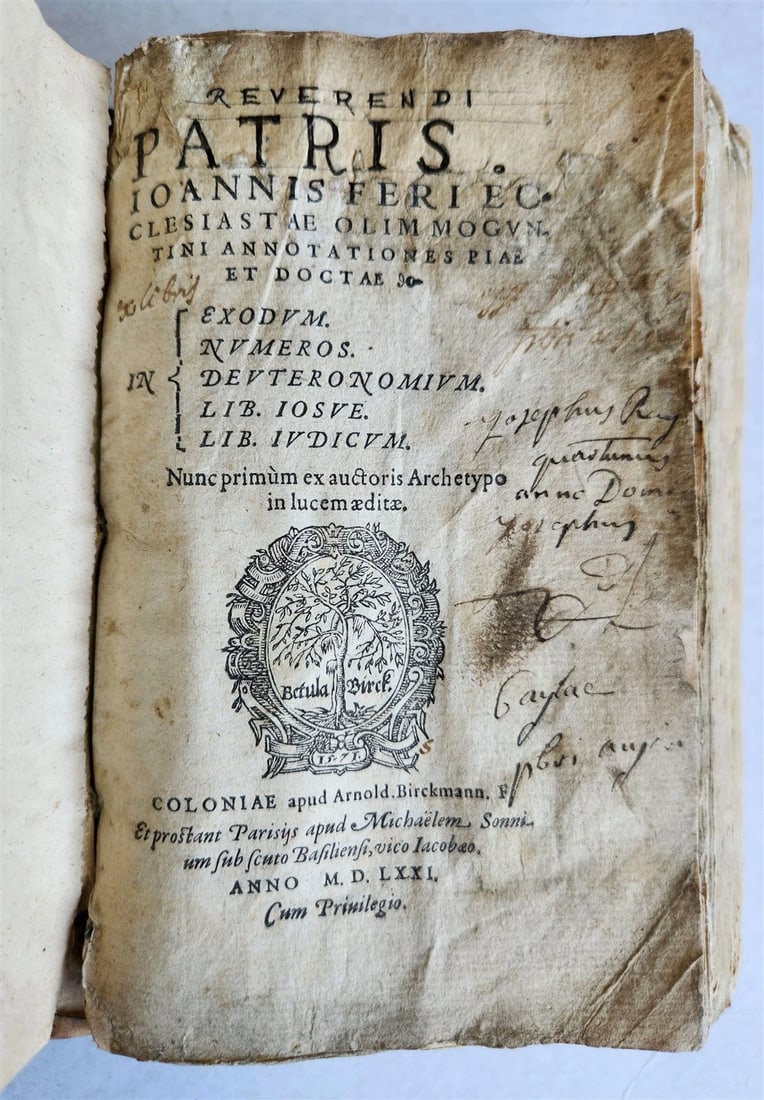 REVERENDI
PATRIS.
IOANNIS FERI EC-
CLESIASTAE OLIM MOGVN-
TINI ANNOTATIONES PIAE
ET DOCTAE
ex libris
EXODVM.
NVMEROS.
IN DEVTERONOMIVM.
LIB. IOSVE.
LIB. IVDICVM.
Josephus
anno
Josephus
Nunc primùm ex auctoris Archetypo
in lucem æditæ.
Betula Birck.
1571
COLONIAE apud Arnold. Birckmann. F
Et prostant Parisijs apud Michaëlem Sonni
um sub scuto Basiliensi, vico Iacobæo.
ANNO M. D. LXXI.
Cum Priuilegio.